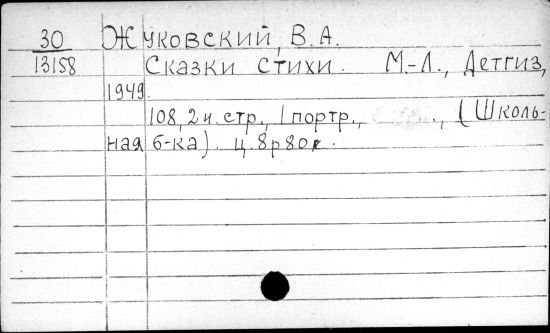 30 Жуковский, В.А.
13158 Сказки стихи. М.-Л., Детгиз,
1949.
108, 2 н. стр., 1 портр., , (Школь-
ная б-ка). ц. 8р80к.